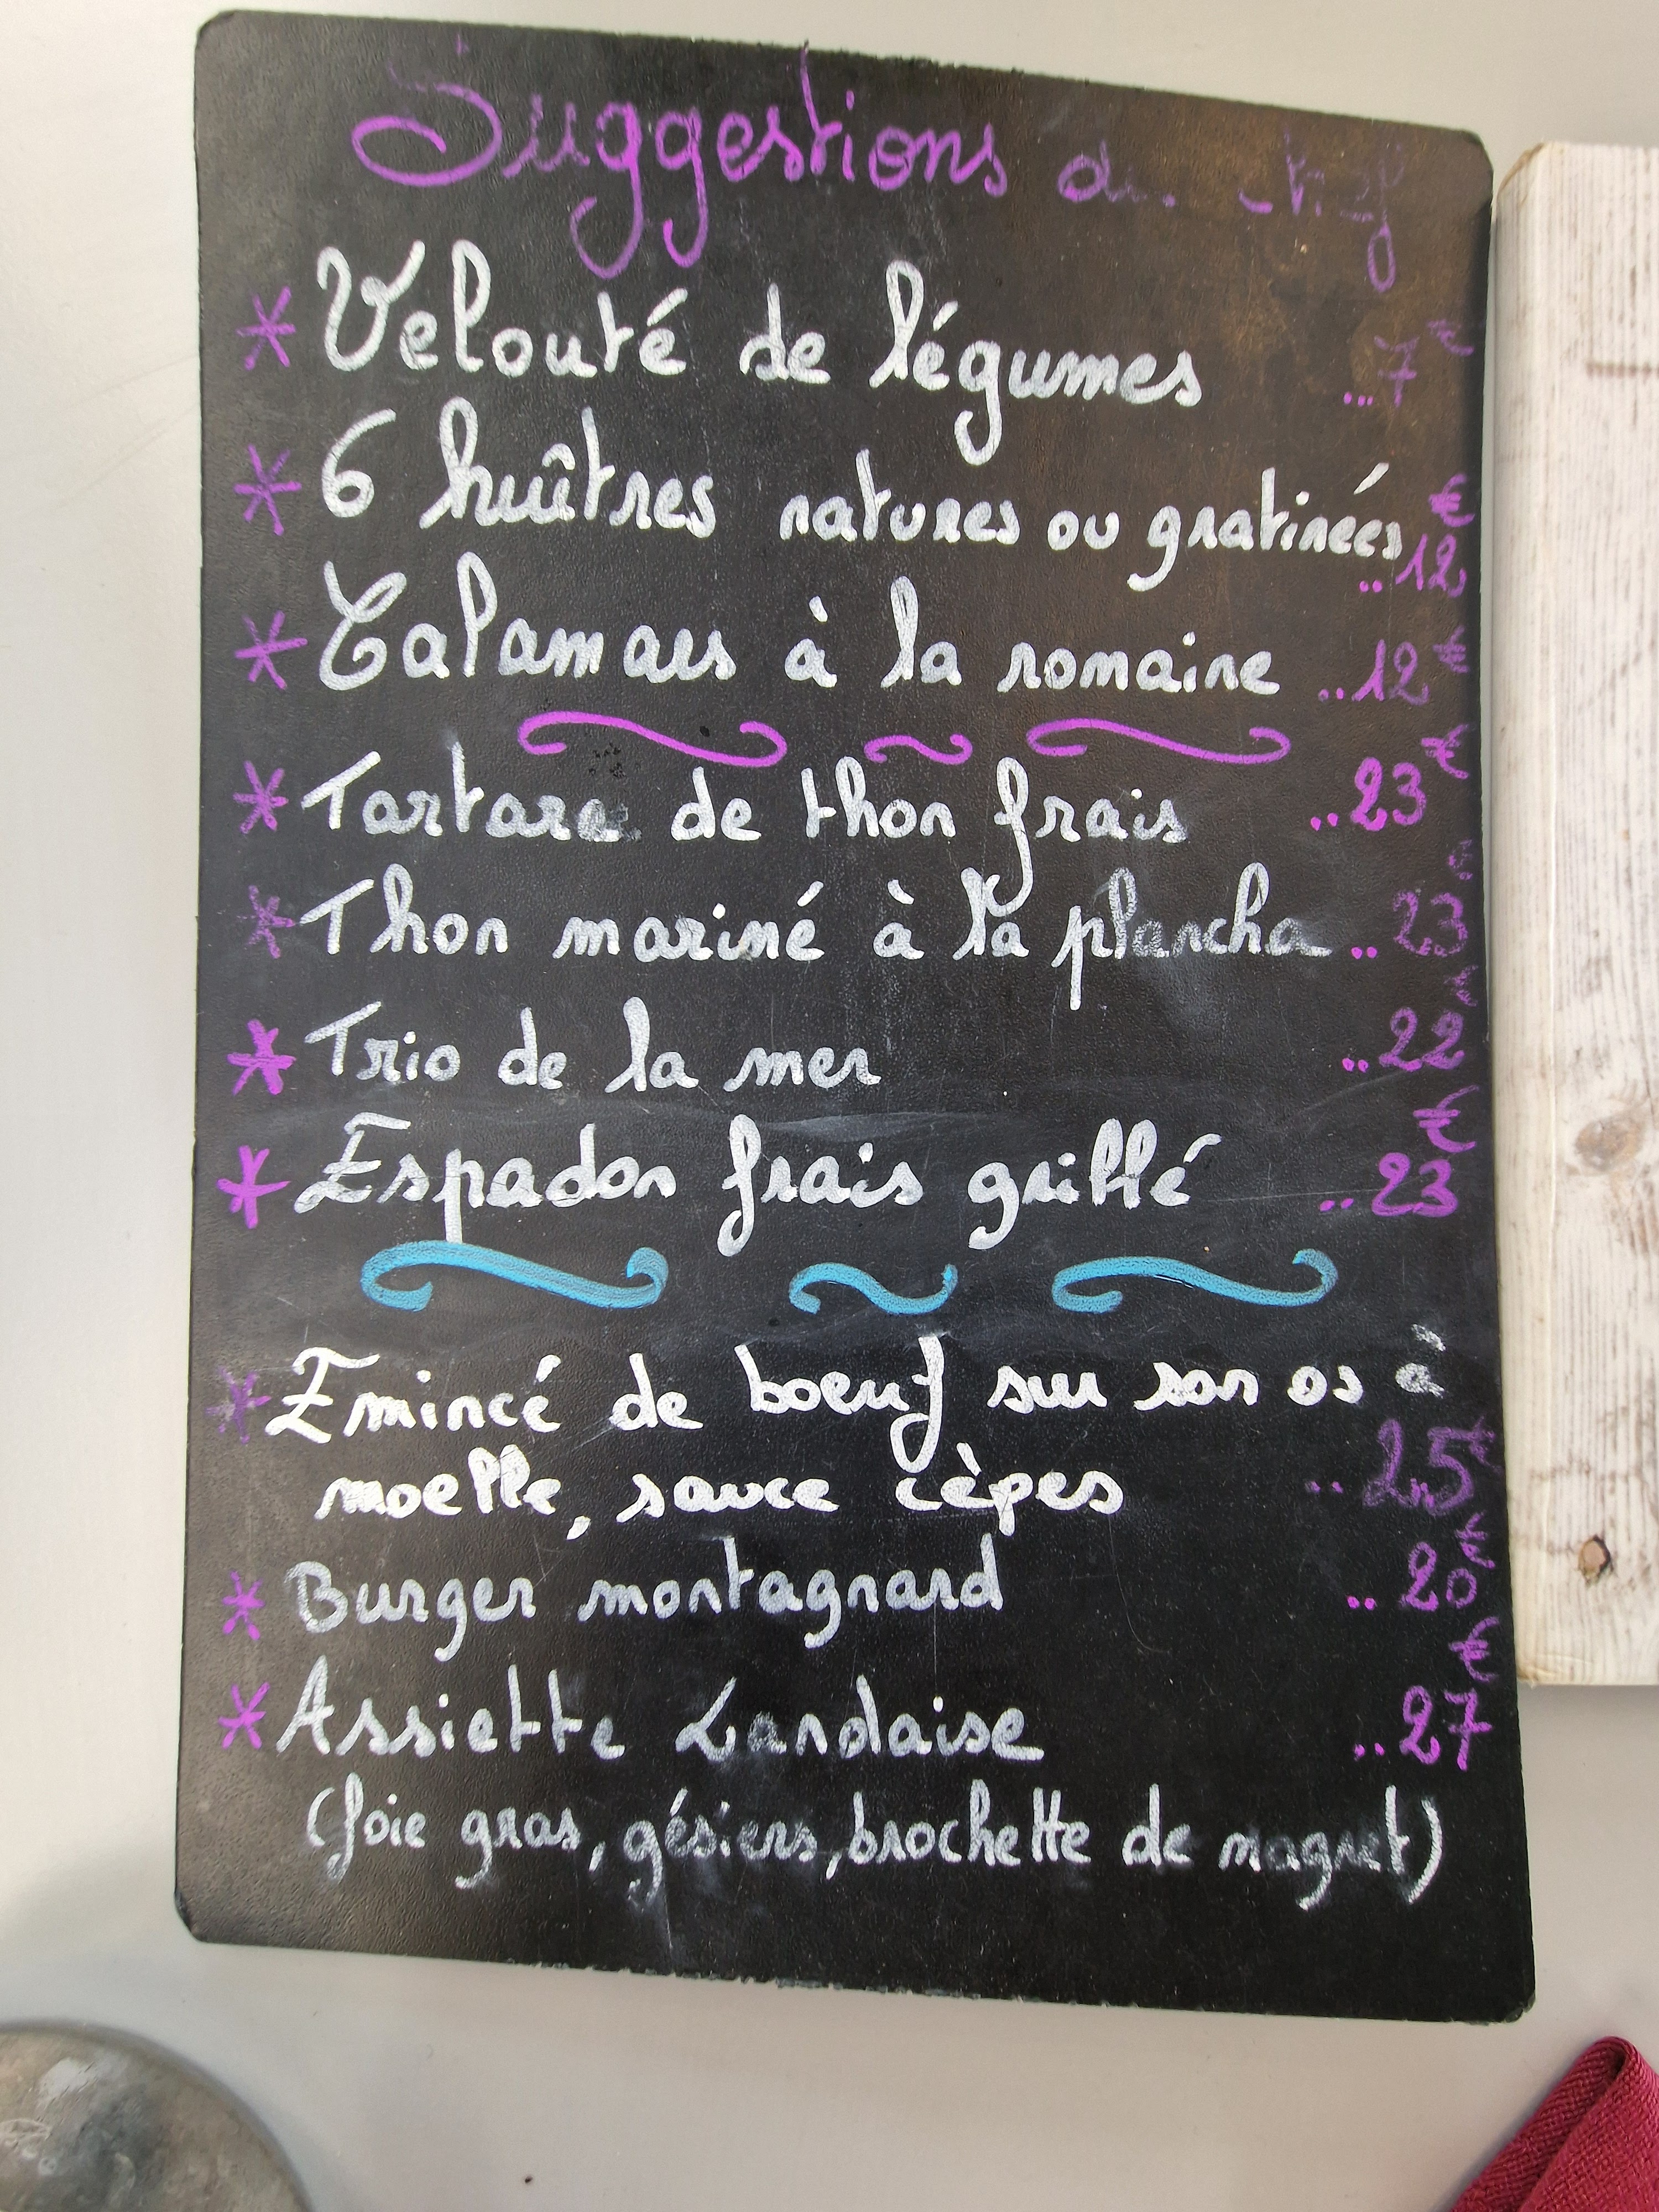 Suggestions du chef
* Velouté de légumes ...7€
* 6 huîtres natures ou gratinées ..12€
* Calamars à la romaine ..12€
* Tartare de thon frais ..23€
* Thon mariné à la plancha ..23€
* Trio de la mer ..22€
* Espadon frais grillé ..23€
* Emincé de boeuf sur son os à
moelle, sauce cèpes ..25€
* Burger montagnard ..20€
* Assiette Landaise ..27€
(foie gras, gésiers, brochette de magret)